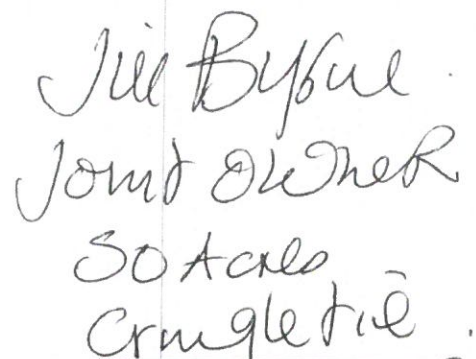 Jill Byrne
Joint OWNER
50 Acres
Cringletie